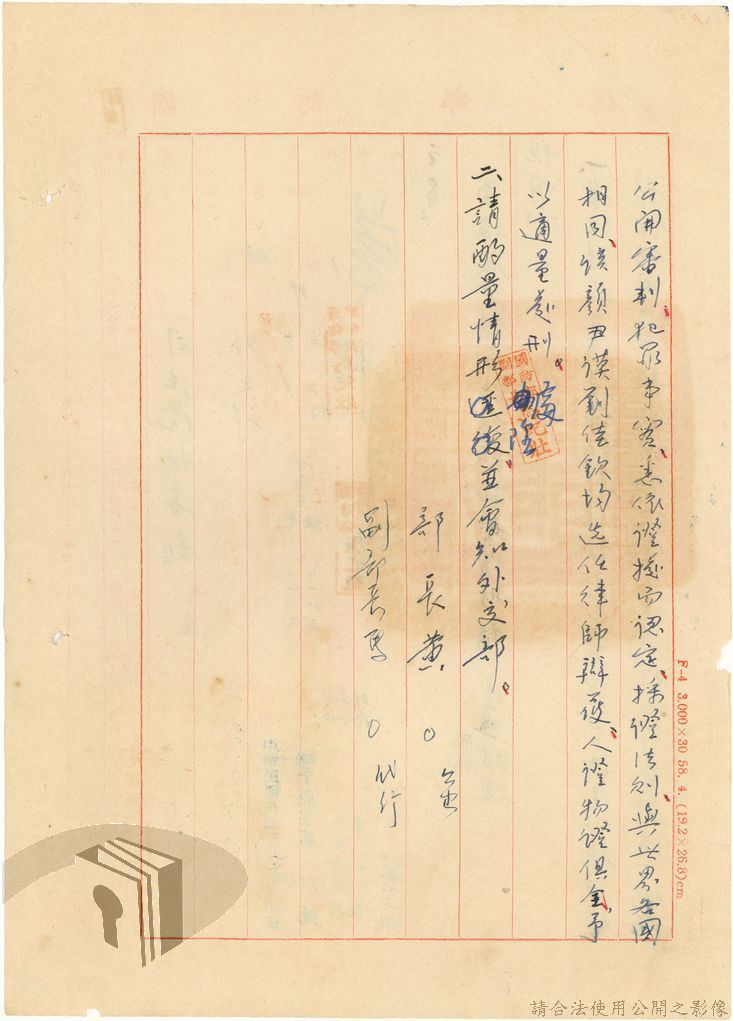 公開審判、犯罪事實、悉依證據而認定、採證法則、與世界各國
相同、該顏尹謨劉佳欽均選任律師辯護、人證物證俱全、予
以適量處刑。
二、請酌量情形逕復並會知外交部。
部長黃〇
副部長馬〇代行
F-4 3,000×30 58. 4. (19.2×26.8)cm
請合法使用公開之影像